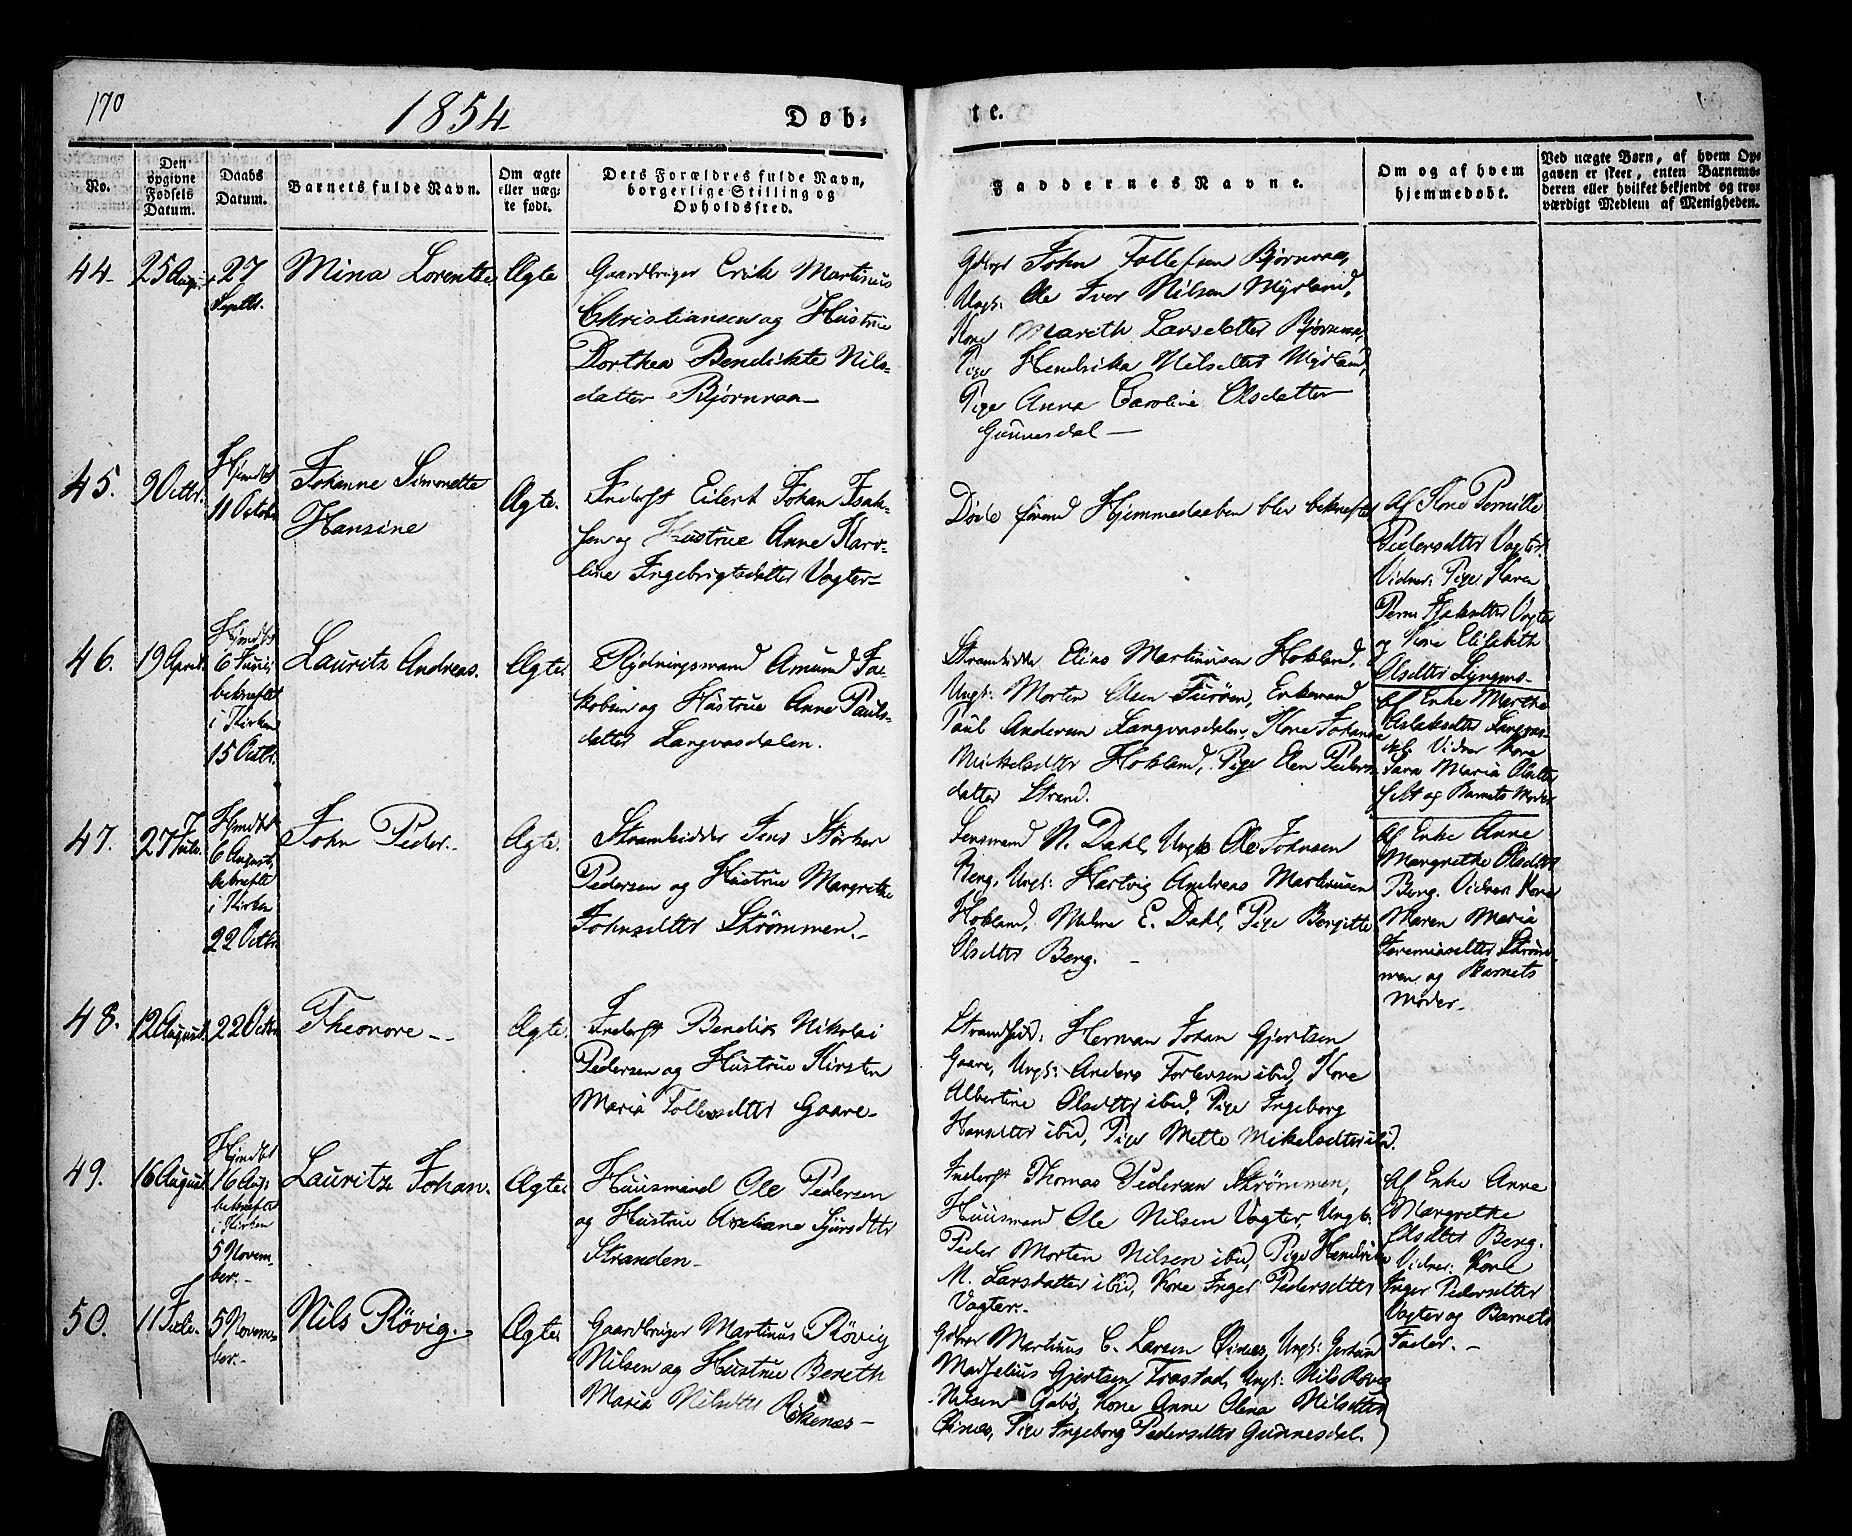 170
1854
Døb-
te.
No.
Den opgivne Fødsels Datum.
Daabs Datum.
Barnets fulde Navn.
Om ægte eller uægte født.
Dets Forældres fulde Navn, borgerlige Stilling og Opholdssted.
Faddernes Navne.
Om og af hvem hjemmedøbt.
Ved uægte Børn, af hvem Opgaven er skeet, enten Barnemoderen eller hvilket bekjendt og troværdigt Medlem af Menigheden.
44.
25 Augu
27
Septbr.
Mina Lorentze
Ægte
Gaardbruger Erik Martinus
Christiansen og Hustrue
Dorthea Bendikte Nils-
datter Bjørnraa
John Tollefsen Bjørnraa,
Ungk: Ole Iver Nilsen Myrland,
Kone Marith Larsdatter Bjørnraa,
Pige Hendrika Nilsdtter Myrland,
Pige Anna Caroline Olsdatter
Gunnesdal
45.
9 Octbr.
Hjemdbt
11 Octobr
Johanne Simonette
Hansine
Ægte.
Inderst Eilert Johan Isak-
sen og Hustrue Anne Karo-
line Ingebrigtsdatter Vogter
Døde førend Hjemmedaaben blev bekræftet
Af Kone Pernille
Pedersdtter Vogter.
Vidner: Pige Karen
Isaksdtter Vogter
og Kone Elisabeth
Olsdtter
46.
19 April.
Hjemdbt
6 Juni,
bekræftet
i Kirken
15 Octbr.
Lauritz Andreas.
Ægte.
Rydningsmand Amund Ja-
kobsen og Hustrue Anne Pauls-
datter Langvasdalen.
Strandsidder Elias Martinusen Hokland,
Ungk: Morten Olsen Furøen, Enkemand
Paul Andersen Langvasdalen, Kone Johanna
Mickelsdtter Hokland, Pige Elen Peders-
datter Strand.
Af Enke Marthe
Aslaksdtter Langvas-
dal. Vidner Kone
Sara Maria Olsdtter
og Barnets Moder
47.
27 Juli.
Hjemdbt
6 August,
bekræftet
i Kirken
22 Octbr
John Peder.
Ægte.
Strandsidder Jens Størker
Pedersen og Hustrue Margrethe
Johnsdtter Strømmen.
Lensmand N. Dahl, Ungk Ole Johnsen
Berg, Ungk: Hartvig Andreas Martinusen
Hokland, Madme E. Dahl, Pige Bergitte
Olsdtter Berg.
Af Enke Anne
Margrethe Olsdtter
Berg. Vidner: Kone
Maren Maria
Jeremiasdtter Strøm-
men og Barnets
Moder.
48.
12 August.
22 Octbr
Theonore
Ægte.
Inderst Bendix Nikolai
Pedersen og Hustrue Kirsten
Maria Tollevsdtter Gaare
Strandsid: Herman Johan Gjertsen
Gaare, Ungk: Anders Torlevsen ibid, Kone
Albertine Olsdtter ibid, Pige Ingeborg
Hansdtter ibid, Pige Mette Mikelsdtter ibid.
49.
16 August
Hjemdbt
16 Aug.
bekræftet
i Kirken
5 Novem-
ber.
Lauritz Johan.
Ægte
Huusmand Ole Pedersen
og Hustrue Axeliane Sjursdtter
Stranden
Inderst Thomas Pedersen Strømmen,
Huusmand Ole Nilsen Vogter, Ungk:
Peder Morten Nilsen ibid, Pige Hendrikke
M. Larsdatter ibid, Kone Inger Pedersdtter
Vogter.
Af Enke Anne
Margrethe
Olsdtter Berg.
Vidner: Kone
Inger Pedersdtter
Vogter og Barnets
Fader.
50.
11 Juli.
5 Novem-
ber.
Nils Røvig.
Ægte
Gaardbruger Martinus Røvig
Nilsen og Hustrue Bereth
Maria Nilsdtter Røkenæs
Martinus C. Larsen Øinæs, Ungk:
Marselius Gjertsen Trastad, Ungk: Nils Røvig
Nilsen Gabø, Kone Anne Olena Nilsdtter
Øinæs, Pige Ingeborg Pedersdtter Gunnesdal.